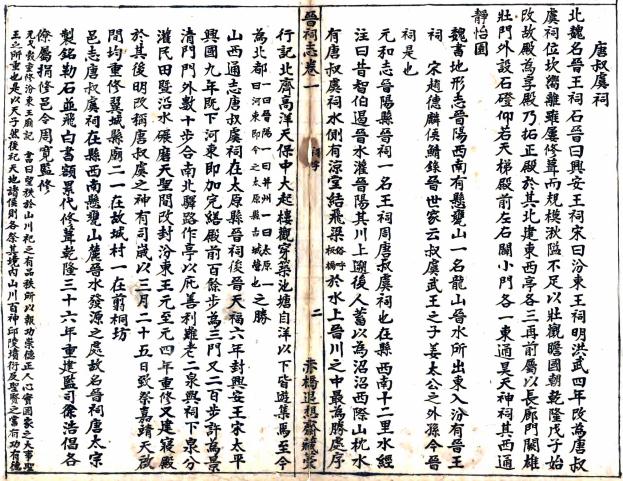 唐叔虞祠
北魏名晉王祠石晉曰興安王祠宋曰汾東王祠明洪武四年改為唐叔
虞祠位坎嚮離雖屢修葺而規模狹隘不足以壯觀瞻國朝乾隆戊子始
改故殿為享殿乃拓正殿於其北建東西亭各三再前屬以長廊門闕雄
壯門外設石磴仰若天梯殿前左右闢小門各一東通昊天神祠其西通
靜怡園
魏書地形志晉陽西南有懸甕山一名龍山晉水所出東入汾有晉王
祠 宋趙德麟侯鯖錄晉世家云叔虞武王之子姜太公之外孫今晉
祠是也
元和志晉陽縣晉祠一名王祠周唐叔虞祠也在縣西南十二里水經
注曰昔智伯遏晉水灌晉陽其川上遡後人蓄以為沼沼西際山枕水
有唐叔虞祠水側有涼堂結飛梁於水上晉川之中最為勝處序
晉祠志卷一
祠宇
二
赤橋退想齋藏槀
行記北齊高洋天保中大起樓觀穿築池塘自洋以下皆遊集焉至今
為北都一曰晉陽一曰并州一曰太原一曰河東即今之太原縣古城營也之勝
山西通志唐叔虞祠在太原縣晉祠後晉天福六年封興安王宋太平
興國九年既下河東即加完繕殿前百餘步為三門又二百步許為景
清門門外數十步合南北驛路作亭以庇善利難老二泉興祠下泉分
灌民田暨沿水碾磨天聖間改封汾東王元至元四年重修又建寢殿
於其後明改稱唐叔虞之神有司歲以三月二十五日致祭嘉靖天啟
間均重修翼城縣廟二一在故城村一在翦桐坊
邑志唐叔虞祠在縣西南懸甕山麓晉水發源之處故名晉祠唐太宗
製銘勒石並飛白書額累代修葺乾隆三十六年重建監司徐浩倡各
僚屬捐修邑令周寬監修
元弋彀重修汾東王廟記 書曰望秩於山川祀之有品秩所以報功崇德正人心實國家之大事聖
王之所重也是以天子然後祀天地諸侯則各祭其境內山川百神邱陵墳衍及聖賢之當有功有德